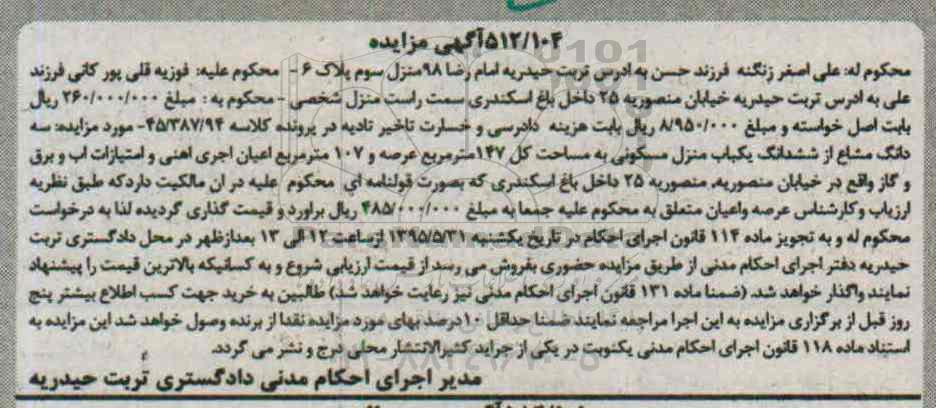 ۵۱۲/۱۰۴آگهی مزایده
محکوم له: علی اصغر زنگنه فرزند حسن به ادرس تربت حیدریه امام رضا ۹۸منزل سوم پلاک ۶ - محکوم علیه: فوزیه قلی پور کانی فرزند
علی به ادرس تربت حیدریه خیابان منصوریه ۲۵ داخل باغ اسکندری سمت راست منزل شخصی - محکوم به : مبلغ ۲۶۰/۰۰۰/۰۰۰ ریال
بابت اصل خواسته و مبلغ ۸/۹۵۰/۰۰۰ ریال بابت هزینه دادرسی و خسارت تاخیر تادیه در پرونده کلاسه ۴۵/۳۸۷/۹۴- مورد مزایده: سه
دانگ مشاع از ششدانگ یکباب منزل مسکونی به مساحت کل ۱۴۷مترمربع عرصه و ۱۰۷ مترمربع اعیان اجری اهنی و امتیازات اب و برق
و گاز واقع در خیابان منصوریه, منصوریه ۲۵ داخل باغ اسکندری که بصورت قولنامه ای محکوم علیه در ان مالکیت داردکه طبق نظریه
ارزیاب وکارشناس عرصه واعیان متعلق به محکوم علیه جمعا به مبلغ ۴۸۵/۰۰۰/۰۰۰ ریال براورد و قیمت گذاری گردیده لذا به درخواست
محکوم له و به تجویز ماده ۱۱۴ قانون اجرای احکام در تاریخ یکشنبه ۱۳۹۵/۵/۳۱ ازساعت ۱۲ الی ۱۳ بعدازظهر در محل دادگستری تربت
حیدریه دفتر اجرای احکام مدنی از طریق مزایده حضوری بفروش می رسد از قیمت ارزیابی شروع و به کسانیکه بالاترین قیمت را پیشنهاد
نمایند واگذار خواهد شد. (ضمنا ماده ۱۳۱ قانون اجرای احکام مدنی نیز رعایت خواهد شد) طالبین به خرید جهت کسب اطلاع بیشتر پنج
روز قبل از برگزاری مزایده به این اجرا مراجعه نمایند ضمنا حداقل ۱۰درصد بهای مورد مزایده نقدا از برنده وصول خواهد شد این مزایده به
استناد ماده ۱۱۸ قانون اجرای احکام مدنی یکنوبت در یکی از جراید کثیرالانتشار محلی درج و نشر می گردد.
مدیر اجرای احکام مدنی دادگستری تربت حیدریه